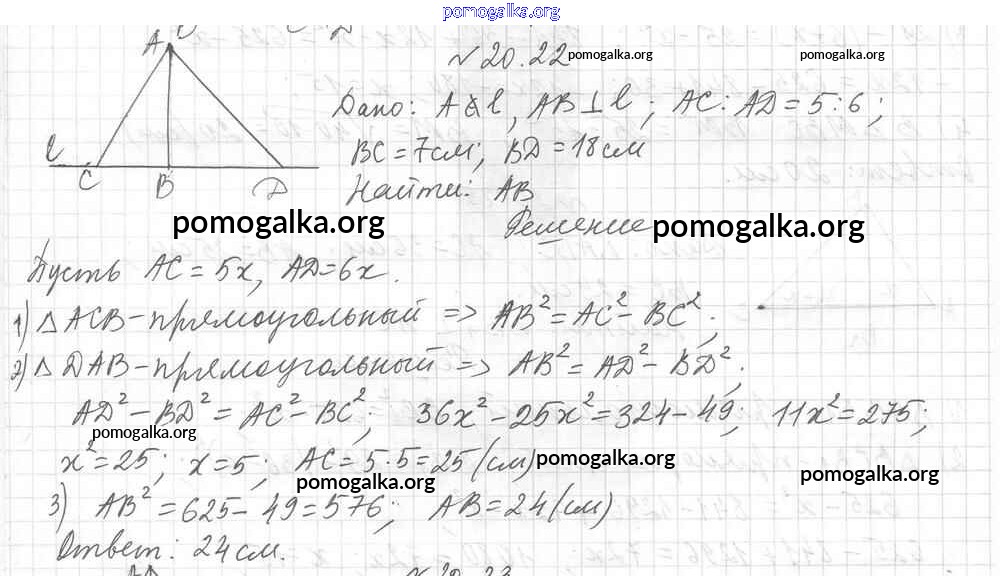 pomogalka.org
№20.22 pomogalka.org pomogalka.org
A
Дано: A ∉ l, AB ⊥ l; AC : AD = 5:6;
BC = 7см; BD = 18см
l C B D
Найти: AB
Решение
pomogalka.org pomogalka.org
Пусть AC = 5x, AD = 6x.
1) △ ACB - прямоугольный => AB² = AC² - BC²;
2) △ DAB - прямоугольный => AB² = AD² - BD²;
AD² - BD² = AC² - BC²; 36x² - 25x² = 324 - 49; 11x² = 275;
pomogalka.org
x² = 25; x = 5; AC = 5·5 = 25 (см)
pomogalka.org
pomogalka.org pomogalka.org
3) AB² = 625 - 49 = 576; AB = 24 (см)
Ответ: 24 см.